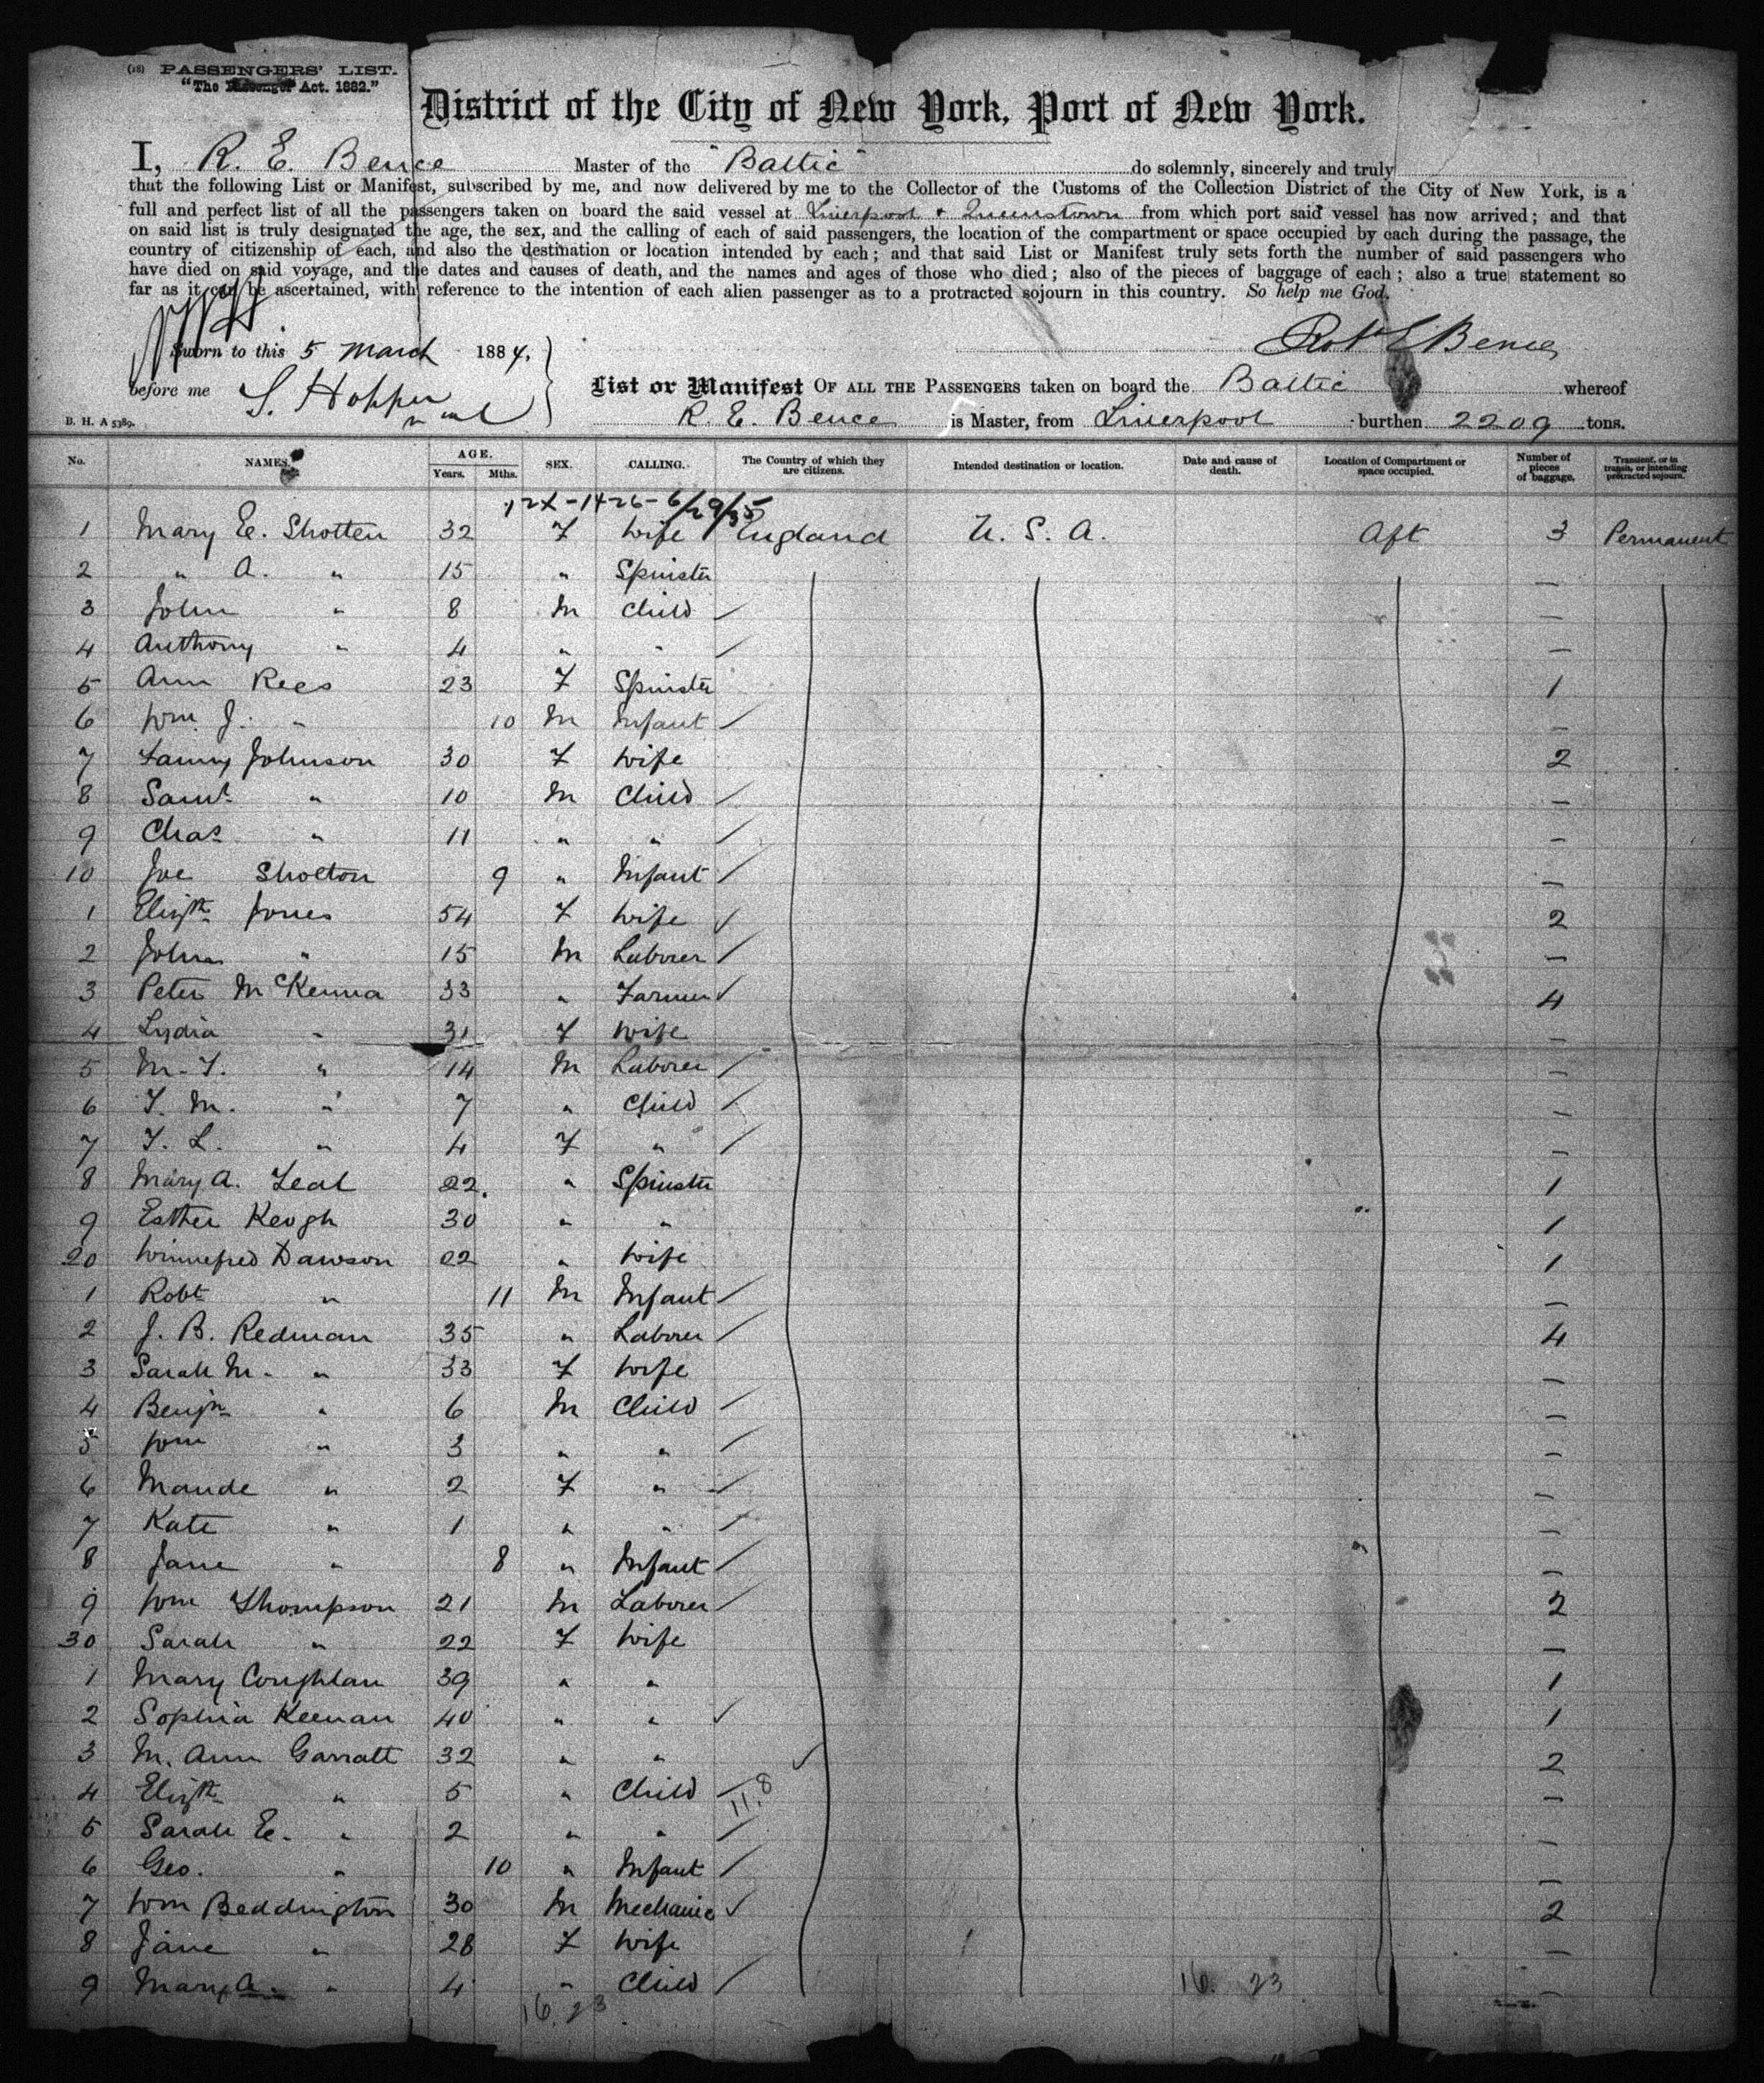 (18) PASSENGERS' LIST.
"The Passenger Act. 1882."
District of the City of New York, Port of New York.
I, R. E. Bence Master of the "Baltic" do solemnly, sincerely and truly
that the following List or Manifest, subscribed by me, and now delivered by me to the Collector of the Customs of the Collection District of the City of New York, is a
full and perfect list of all the passengers taken on board the said vessel at Liverpool & Queenstown from which port said vessel has now arrived; and that
on said list is truly designated the age, the sex, and the calling of each of said passengers, the location of the compartment or space occupied by each during the passage, the
country of citizenship of each, and also the destination or location intended by each; and that said List or Manifest truly sets forth the number of said passengers who
have died on said voyage, and the dates and causes of death, and the names and ages of those who died; also of the pieces of baggage of each; also a true statement so
far as it can be ascertained, with reference to the intention of each alien passenger as to a protracted sojourn in this country. So help me God.
Sworn to this 5 March 1884, Robt E Bence
before me S. Hopper
List or Manifest OF ALL THE PASSENGERS taken on board the Baltic whereof
B. H. A 5389. R. E. Bence is Master, from Liverpool burthen 2209 tons.
No. NAMES. AGE. Years. Mths. SEX. CALLING. The Country of which they are citizens. Intended destination or location. Date and cause of death. Location of Compartment or space occupied. Number of pieces of baggage. Transient, or in transit, or intending protracted sojourn.
12X-1426-6/29/35
1 Mary E. Shotten 32 F Wife England U. S. A. Aft 3 Permanent
2 " A. " 15 " Spinster —
3 John " 8 M Child —
4 Anthony " 4 " " —
5 Ann Rees 23 F Spinster 1
6 Wm J. " 10 M Infant —
7 Fanny Johnson 30 F Wife 2
8 Saml " 10 M Child —
9 Chas " 11 " " —
10 Joe Shotton 9 " Infant —
1 Elizth Jones 54 F Wife 2
2 John " 15 M Laborer —
3 Peter McKenna 33 " Farmer 4
4 Lydia " 31 F Wife —
5 M. F. " 14 M Laborer —
6 F. M. " 7 " Child —
7 F. L. " 4 F " —
8 Mary A. Leal 22 " Spinster 1
9 Esther Keogh 30 " " 1
20 Winnefred Dawson 22 " Wife 1
1 Robt " 11 M Infant —
2 J. B. Redman 35 " Laborer 4
3 Sarah M. " 33 F Wife —
4 Benjn " 6 M Child —
5 Wm " 3 " " —
6 Maude " 2 F " —
7 Kate " 1 " " —
8 Jane " 8 " Infant —
9 Wm Thompson 21 M Laborer 2
30 Sarah " 22 F Wife —
1 Mary Coughlan 39 " " 1
2 Sophia Keenan 40 " " 1
3 M. Ann Garratt 32 " " 2
4 Elizth " 5 " Child —
11.8
5 Sarah E. " 2 " " —
6 Geo. " 10 " Infant —
7 Wm Beddington 30 M Mechanic 2
8 Jane " 28 F Wife —
9 Mary A. " 4 " Child —
16. 23
16. 23